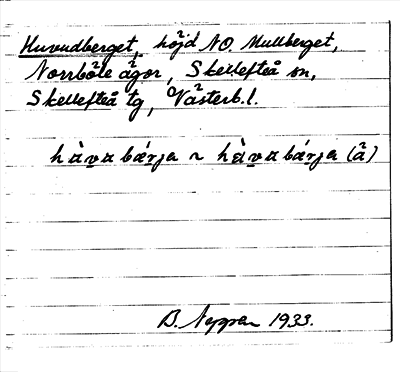 Huvudberget, höjd NO. Mullberget,
Norrböle ägor, Skellefteå sn,
Skellefteå tg, Västerb. l.
hàvabǽrja ~ hàvabárja (ǎ)
B. 1933.